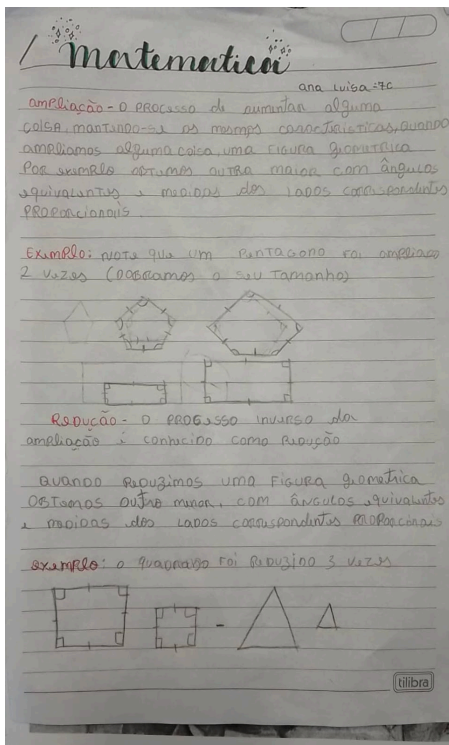 Matematica
ana Luisa :7C
ampliação - O PROCESSO de aumentar alguma
coisa, mantendo-se as mesmas caracteristicas, quando
ampliamos alguma coisa, uma FIGURA geometrica
POR exemplo obtemos outra maior com ângulos
equivalentes e medidas dos lados correspondentes
PROPORCIONAIS.
Exemplo: NOTE que um Pentagono Foi ampliado
2 vezes (DOBRAMOS o seu Tamanho)
Redução - O PROCESSO inverso da
ampliação é conhecido como Redução
Quando Reduzimos uma FIGURA geometrica
OBTEMOS outra menor, com ângulos equivalentes
e medidas dos lados correspondentes PROPORCIONAIS
exemplo: o quadrado Foi Reduzido 3 vezes
tilibra